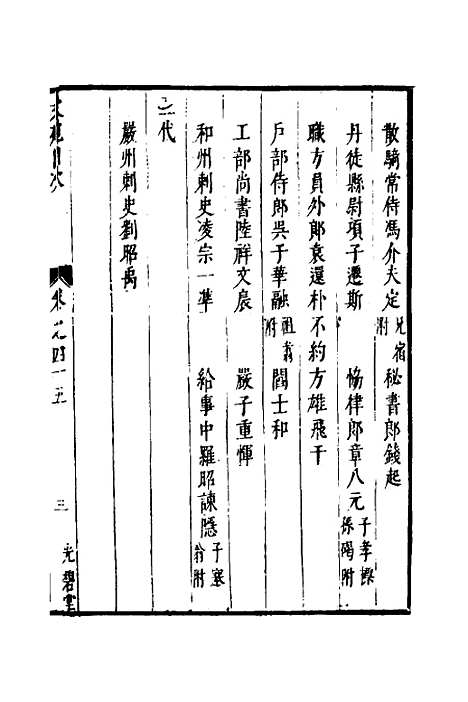 散騎常侍馮介夫定 兄宿附 秘書郎錢起
丹徒縣尉項子遷斯 恊律郎章八元 子孝標 孫碣附
職方員外郎袁還朴不約 方雄飛干
戶部侍郎吳子華融 祖翥附 閻士和
工部尚書陸祥文扆 嚴子重惲
和州刺史凌宗一準 給事中羅昭諫隱 子塞翁附
五代
嚴州刺史劉昭禹
卷之四十五
三
光碧堂